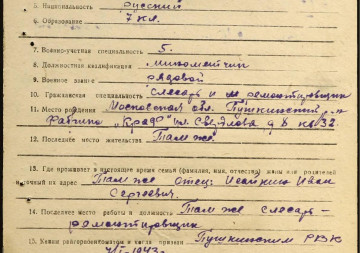 5. Национальность русский
6. Образование 7 кл.
7. Военно-учетная специальность 5.
8. Должностная квалификация минометчик
9. Военное звание рядовой
10. Гражданская специальность слесарь и ремонтировщик
11. Место рождения Московская обл. Пушкинский р-н
Фабрика ул. Свердлова д 8 кв 32
12. Последнее место жительства Там же.
13. Где проживает в настоящее время семья (фамилия, имя, отчество) жены или родителей
и точный их адрес Там же отец: Иван
Сергеевич.
14. Последнее место работы и должность Там же слесарь-
ремонтировщик
15. Каким райгорвоенкоматом и когда призван Пушкинским РВК